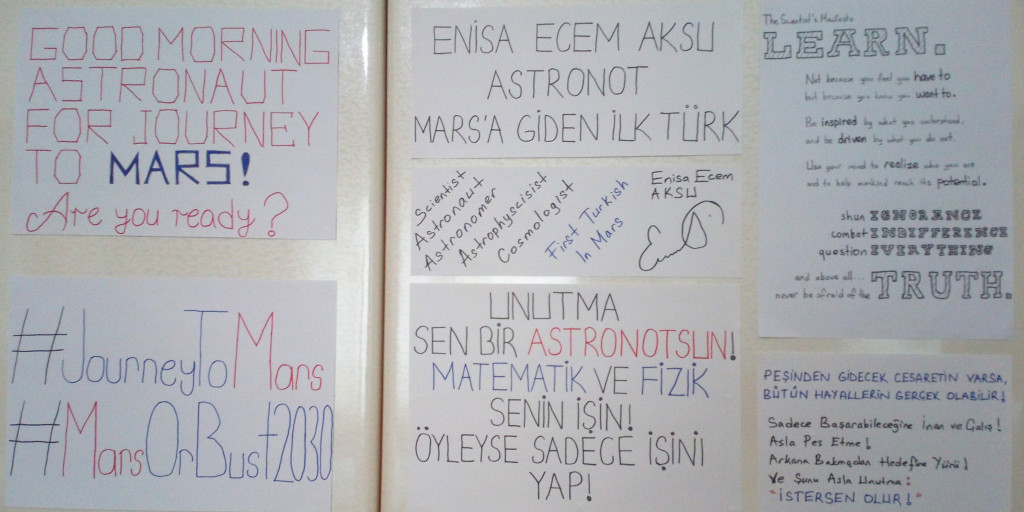 GOOD MORNING
ASTRONAUT
FOR JOURNEY
TO MARS!
Are you ready?
#JourneyToMars
#MarsOrBust2030
ENİSA ECEM AKSU
ASTRONOT
MARS'A GİDEN İLK TÜRK
Scientist
Astronaut
Astronomer
Astrophyscisist
Cosmologist
First Turkish
In Mars
Enisa Ecem
AKSU
UNUTMA
SEN BİR ASTRONOTSUN!
MATEMATİK VE FİZİK
SENİN İŞİN!
ÖYLEYSE SADECE İŞİNİ
YAP!
The Scientist's Manifesto
LEARN.
Not because you feel you have to
but because you know you want to.
Be inspired by what you understand,
and be driven by what you do not.
Use your mind to realize who you are
and to help mankind reach its potential.
shun IGNORANCE
combat INDIFFERENCE
question EVERYTHING
and above all...
never be afraid of the TRUTH.
PEŞİNDEN GİDECEK CESARETİN VARSA,
BÜTÜN HAYALLERİN GERÇEK OLABİLİR!
Sadece Başarabileceğine İnan ve Çalış!
Asla Pes Etme!
Arkana Bakmadan Hedefine Yürü!
Ve Şunu Asla Unutma:
"İSTERSEN OLUR!"